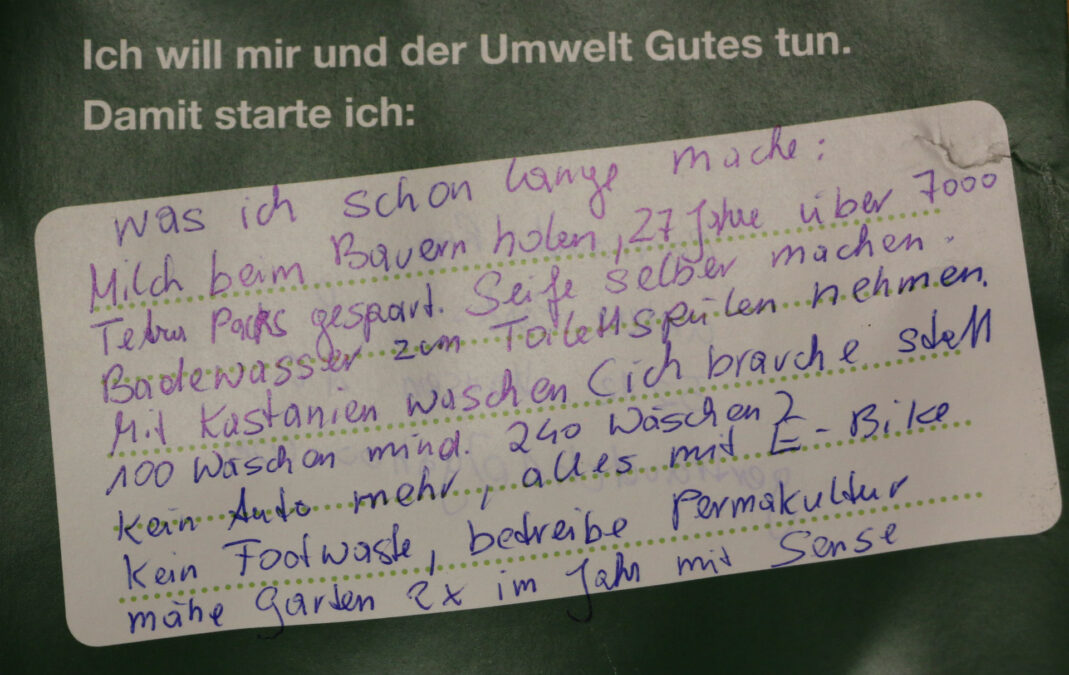 Ich will mir und der Umwelt Gutes tun.
Damit starte ich:
was ich schon lange mache:
Milch beim Bauern holen, 27 Jahre über 7000
Tetra Packs gespart. Seife selber machen.
Badewasser zum Toilettspülen nehmen.
Mit Kastanien waschen (ich brauche statt
100 Waschen mind. 240 Wäschen)
Kein Auto mehr, alles mit E-Bike
Kein Footwaste, betreibe Permakultur
mähe Garten 2x im Jahr mit Sense